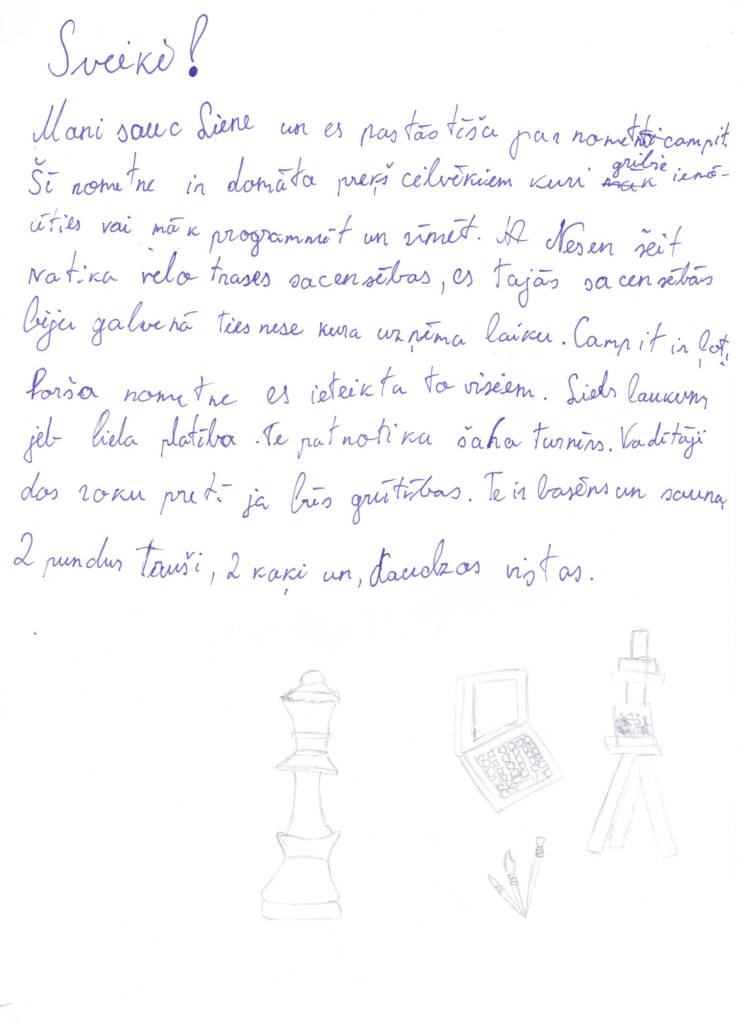 Sveiki!
Mani sauc Liene un es pastāstīšu par nometni campit.
Šī nometne ir domāta priekš cilvēkiem kuri gribie iemā-
cīties vai māk programmēt un zīmēt. Nesen šeit
notika velo trases sacensības, es tajās sacensībās
biju galvenā tiesnese kura uzņēma laiku. Campit ir ļoti
forša nometne es ieteiktu to visiem. Liels laukums
jeb liela platība. Te pat notika šaha turnīrs. Vadītāji
dos roku pretī ja būs grūtības. Te ir basēns un sauna,
2 pundur truši, 2 kaķi un, daudzas vistas.